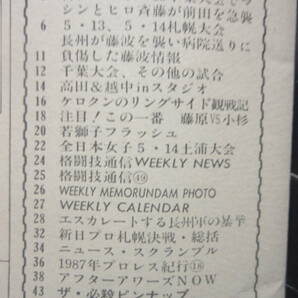 シンとヒロ斉藤が前田を急襲
6 5・13、5・14札幌大会
長州が藤波を襲い病院送りに
11 負傷した藤波情報
12 千葉大会、その他の試合
14 高田&越中inスタジオ
16 ケロクンのリングサイド観戦記
18 注目!この一番 藤原VS小杉
20 若獅子フラッシュ
22 全日本女子5・14土浦大会
24 格闘技通信WEEKLY NEWS
25 格闘技通信㊾
26 WEEKLY MEMORUNDAM PHOTO
27 WEEKLY CALENDAR
28 エスカレートする長州軍の暴挙
32 新日プロ札幌決戦・総括
34 ニュース・スクランブル
36 1987年プロレス紀行⑱
38 アフターアワーズNOW
43 ザ・必殺ピンナップ